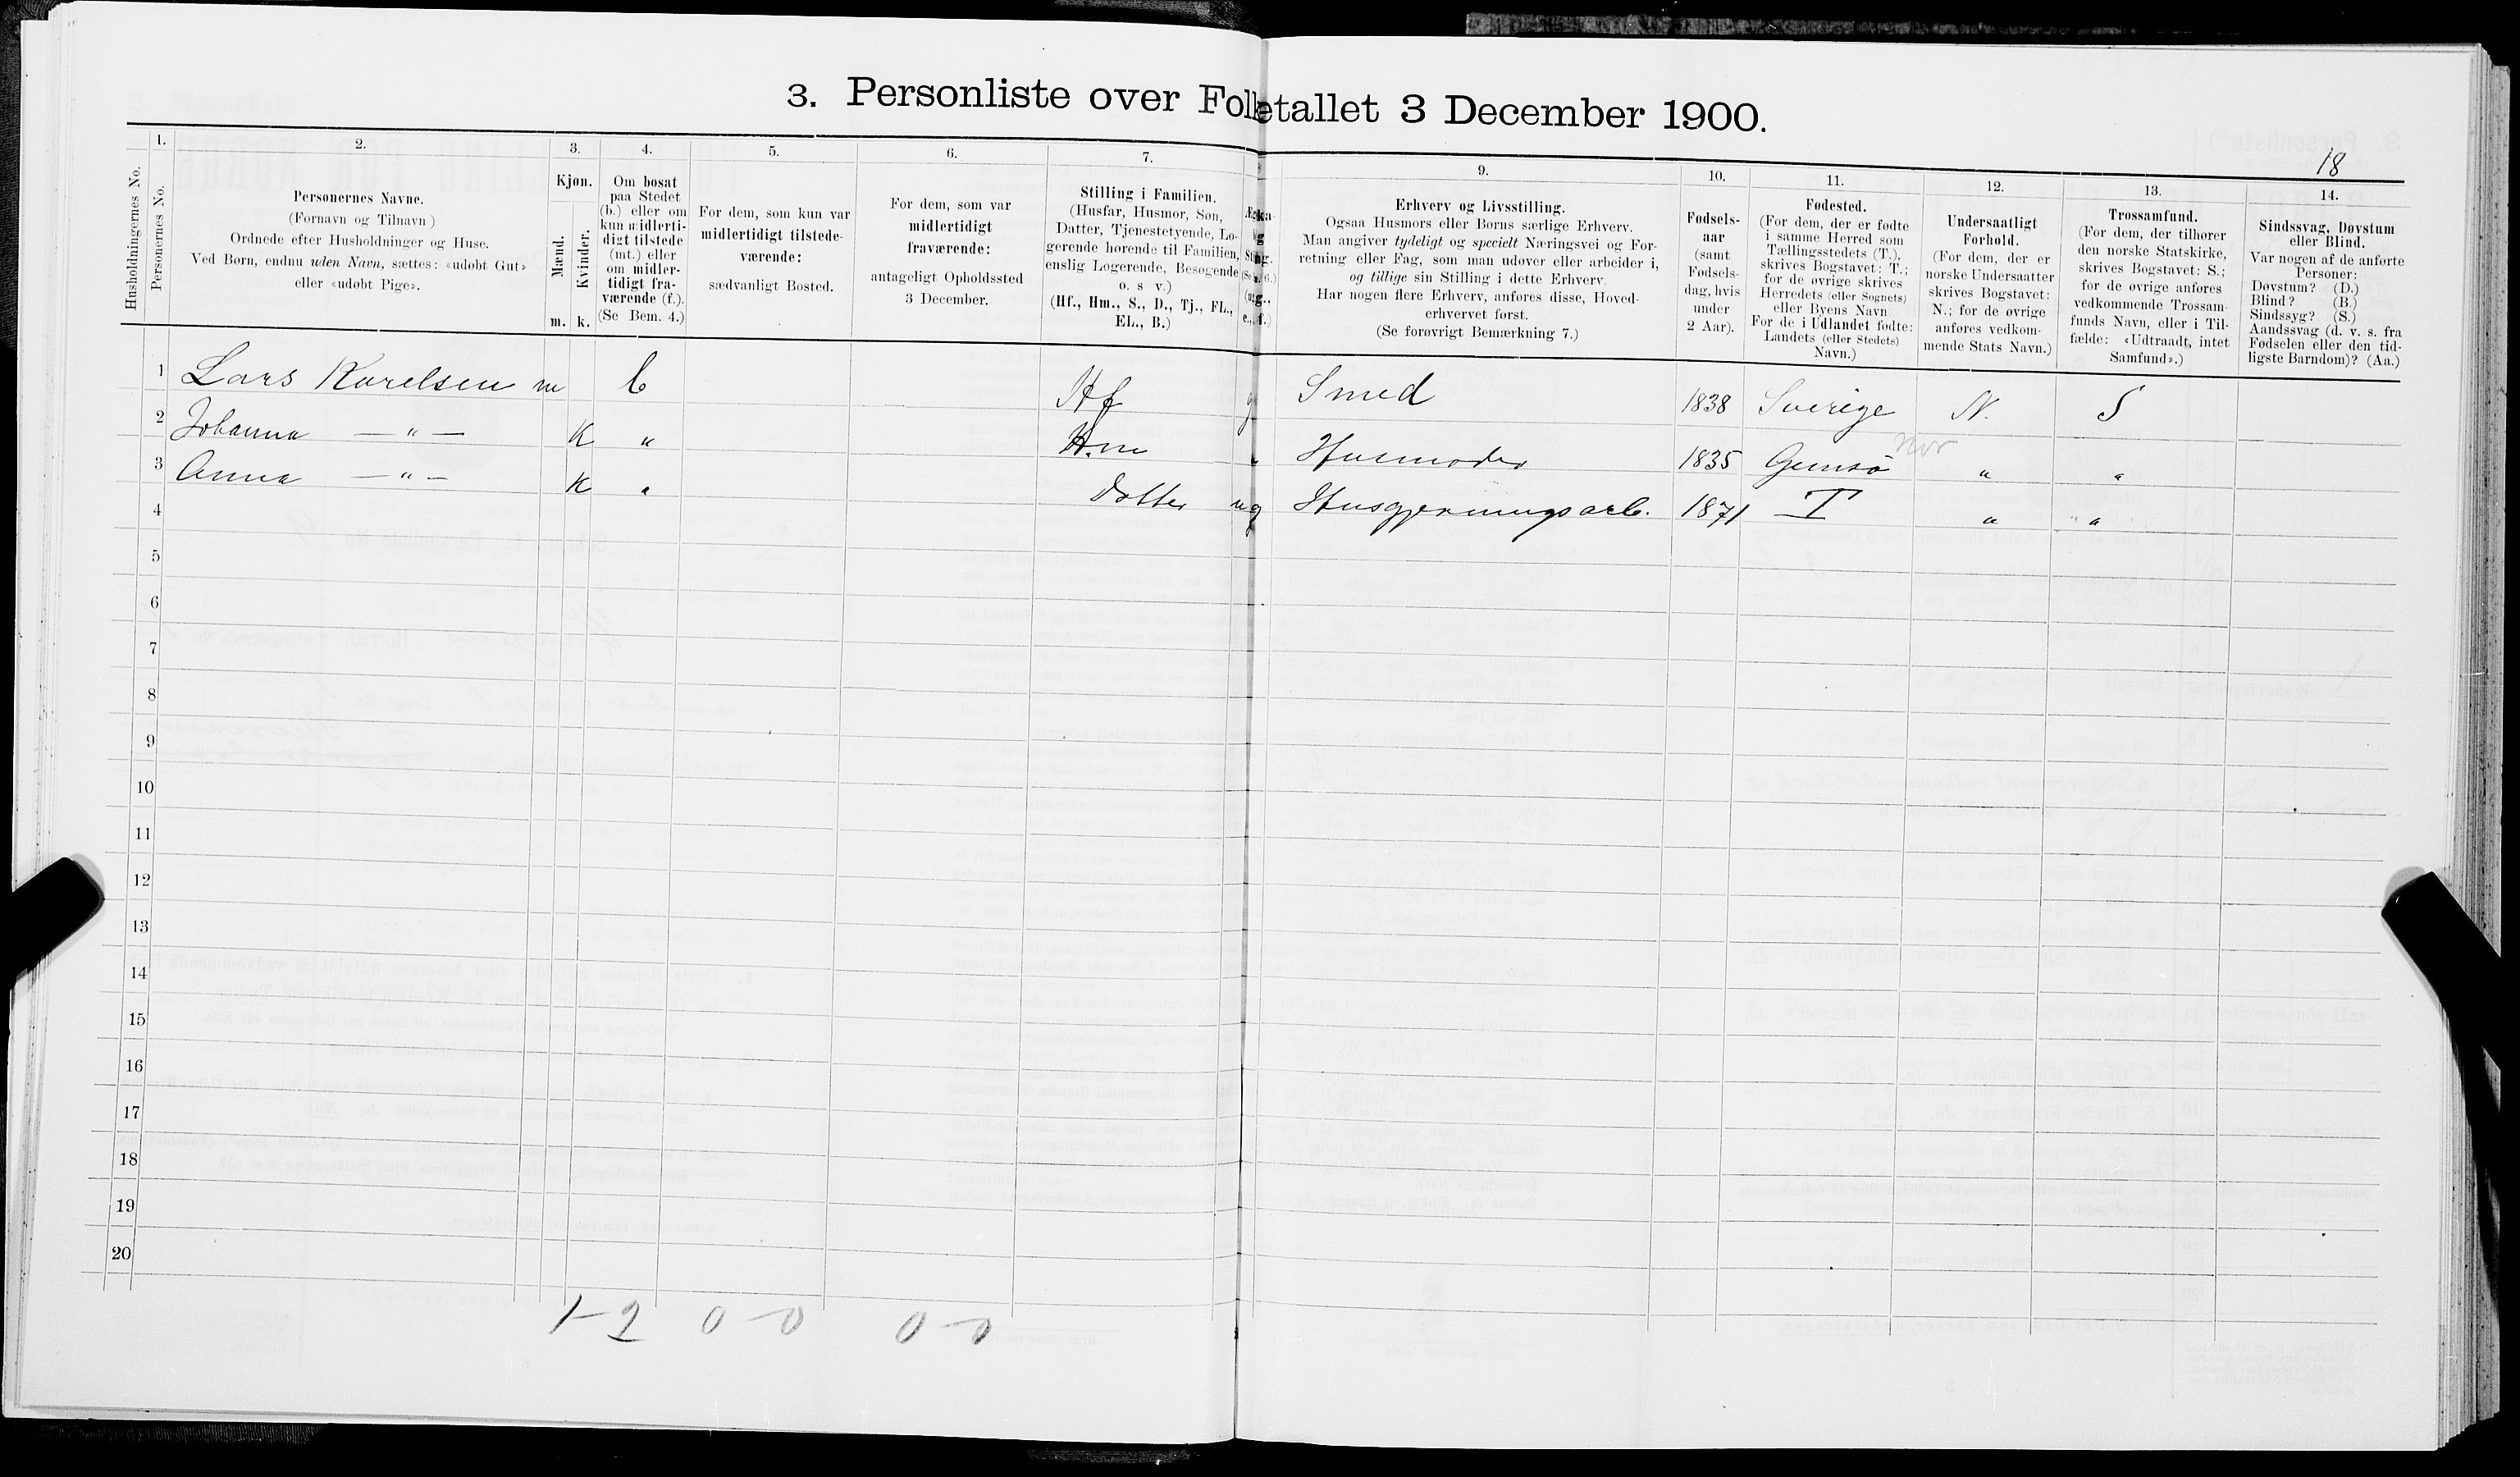 3. Personliste over Folketallet 3 December 1900.
18
1.
Husholdningernes No.
Personernes No.
2.
Personernes Navne.
(Fornavn og Tilnavn)
Ordnede efter Husholdninger og Huse.
Ved Børn, endnu uden Navn, sættes: «udøbt Gut»
eller «udøbt Pige».
3.
Kjøn.
Mænd.
Kvinder.
m. k.
4.
Om bosat
paa Stedet
(b.) eller om
kun midlerti-
digt tilstede
(mt.) eller
om midler-
tidigt fra-
værende (f.).
(Se Bem. 4.)
5.
For dem, som kun var
midlertidigt tilstede-
værende:
sædvanligt Bosted.
6.
For dem, som var
midlertidigt
fraværende:
antageligt Opholdssted
3 December.
7.
Stilling i Familien.
(Husfar, Husmor, Søn,
Datter, Tjenestetyende, Lo-
gerende hørende til Familien,
enslig Logerende, Besøgende
o. s v.)
(Hf., Hm., S., D., Tj., FL.,
EL., B.)
9.
Erhverv og Livsstilling.
Ogsaa Husmors eller Børns særlige Erhverv.
Man angiver tydeligt og specielt Næringsvei og For-
retning eller Fag, som man udøver eller arbeider i,
og tillige sin Stilling i dette Erhverv.
Har nogen flere Erhverv, anføres disse, Hoved-
erhvervet først.
(Se forøvrigt Bemærkning 7.)
10.
Fødsels-
aar
(samt
Fødsels-
dag, hvis
under
2 Aar).
11.
Fødested.
(For dem, der er fødte
i samme Herred som
Tællingsstedets (T.),
skrives Bogstavet: T.;
for de øvrige skrives
Herredets (eller Sognets)
eller Byens Navn
For de i Udlandet fødte:
Landets (eller Stedets)
Navn.)
12.
Undersaatligt
Forhold.
(For dem, der er
norske Undersaatter
skrives Bogstavet:
N.; for de øvrige
anføres vedkom-
mende Stats Navn.)
13.
Trossamfund.
(For dem, der tilhører
den norske Statskirke,
skrives Bogstavet: S.;
for de øvrige anføres
vedkommende Trossam-
funds Navn, eller i Til-
fælde: «Udtraadt, intet
Samfund».)
14.
Sindssvag, Døvstum
eller Blind.
Var nogen af de anførte
Personer:
Døvstum? (D.)
Blind? (B.)
Sindssyg? (S.)
Aandssvag (d. v. s. fra
Fødselen eller den tid-
ligste Barndom)? (Aa.)
1 Lars Karelsen m b Hf g Smed 1838 Sverige N. S
2 Johanna — " — K " H.m " Husmoder 1835 Gemsø " "
3 Anna — " — K " Datter ug Husgjerningsarb. 1871 T " "
4
5
6
7
8
9
10
11
12
13
14
15
16
17
18
19
20
1-2 0-0 0-0